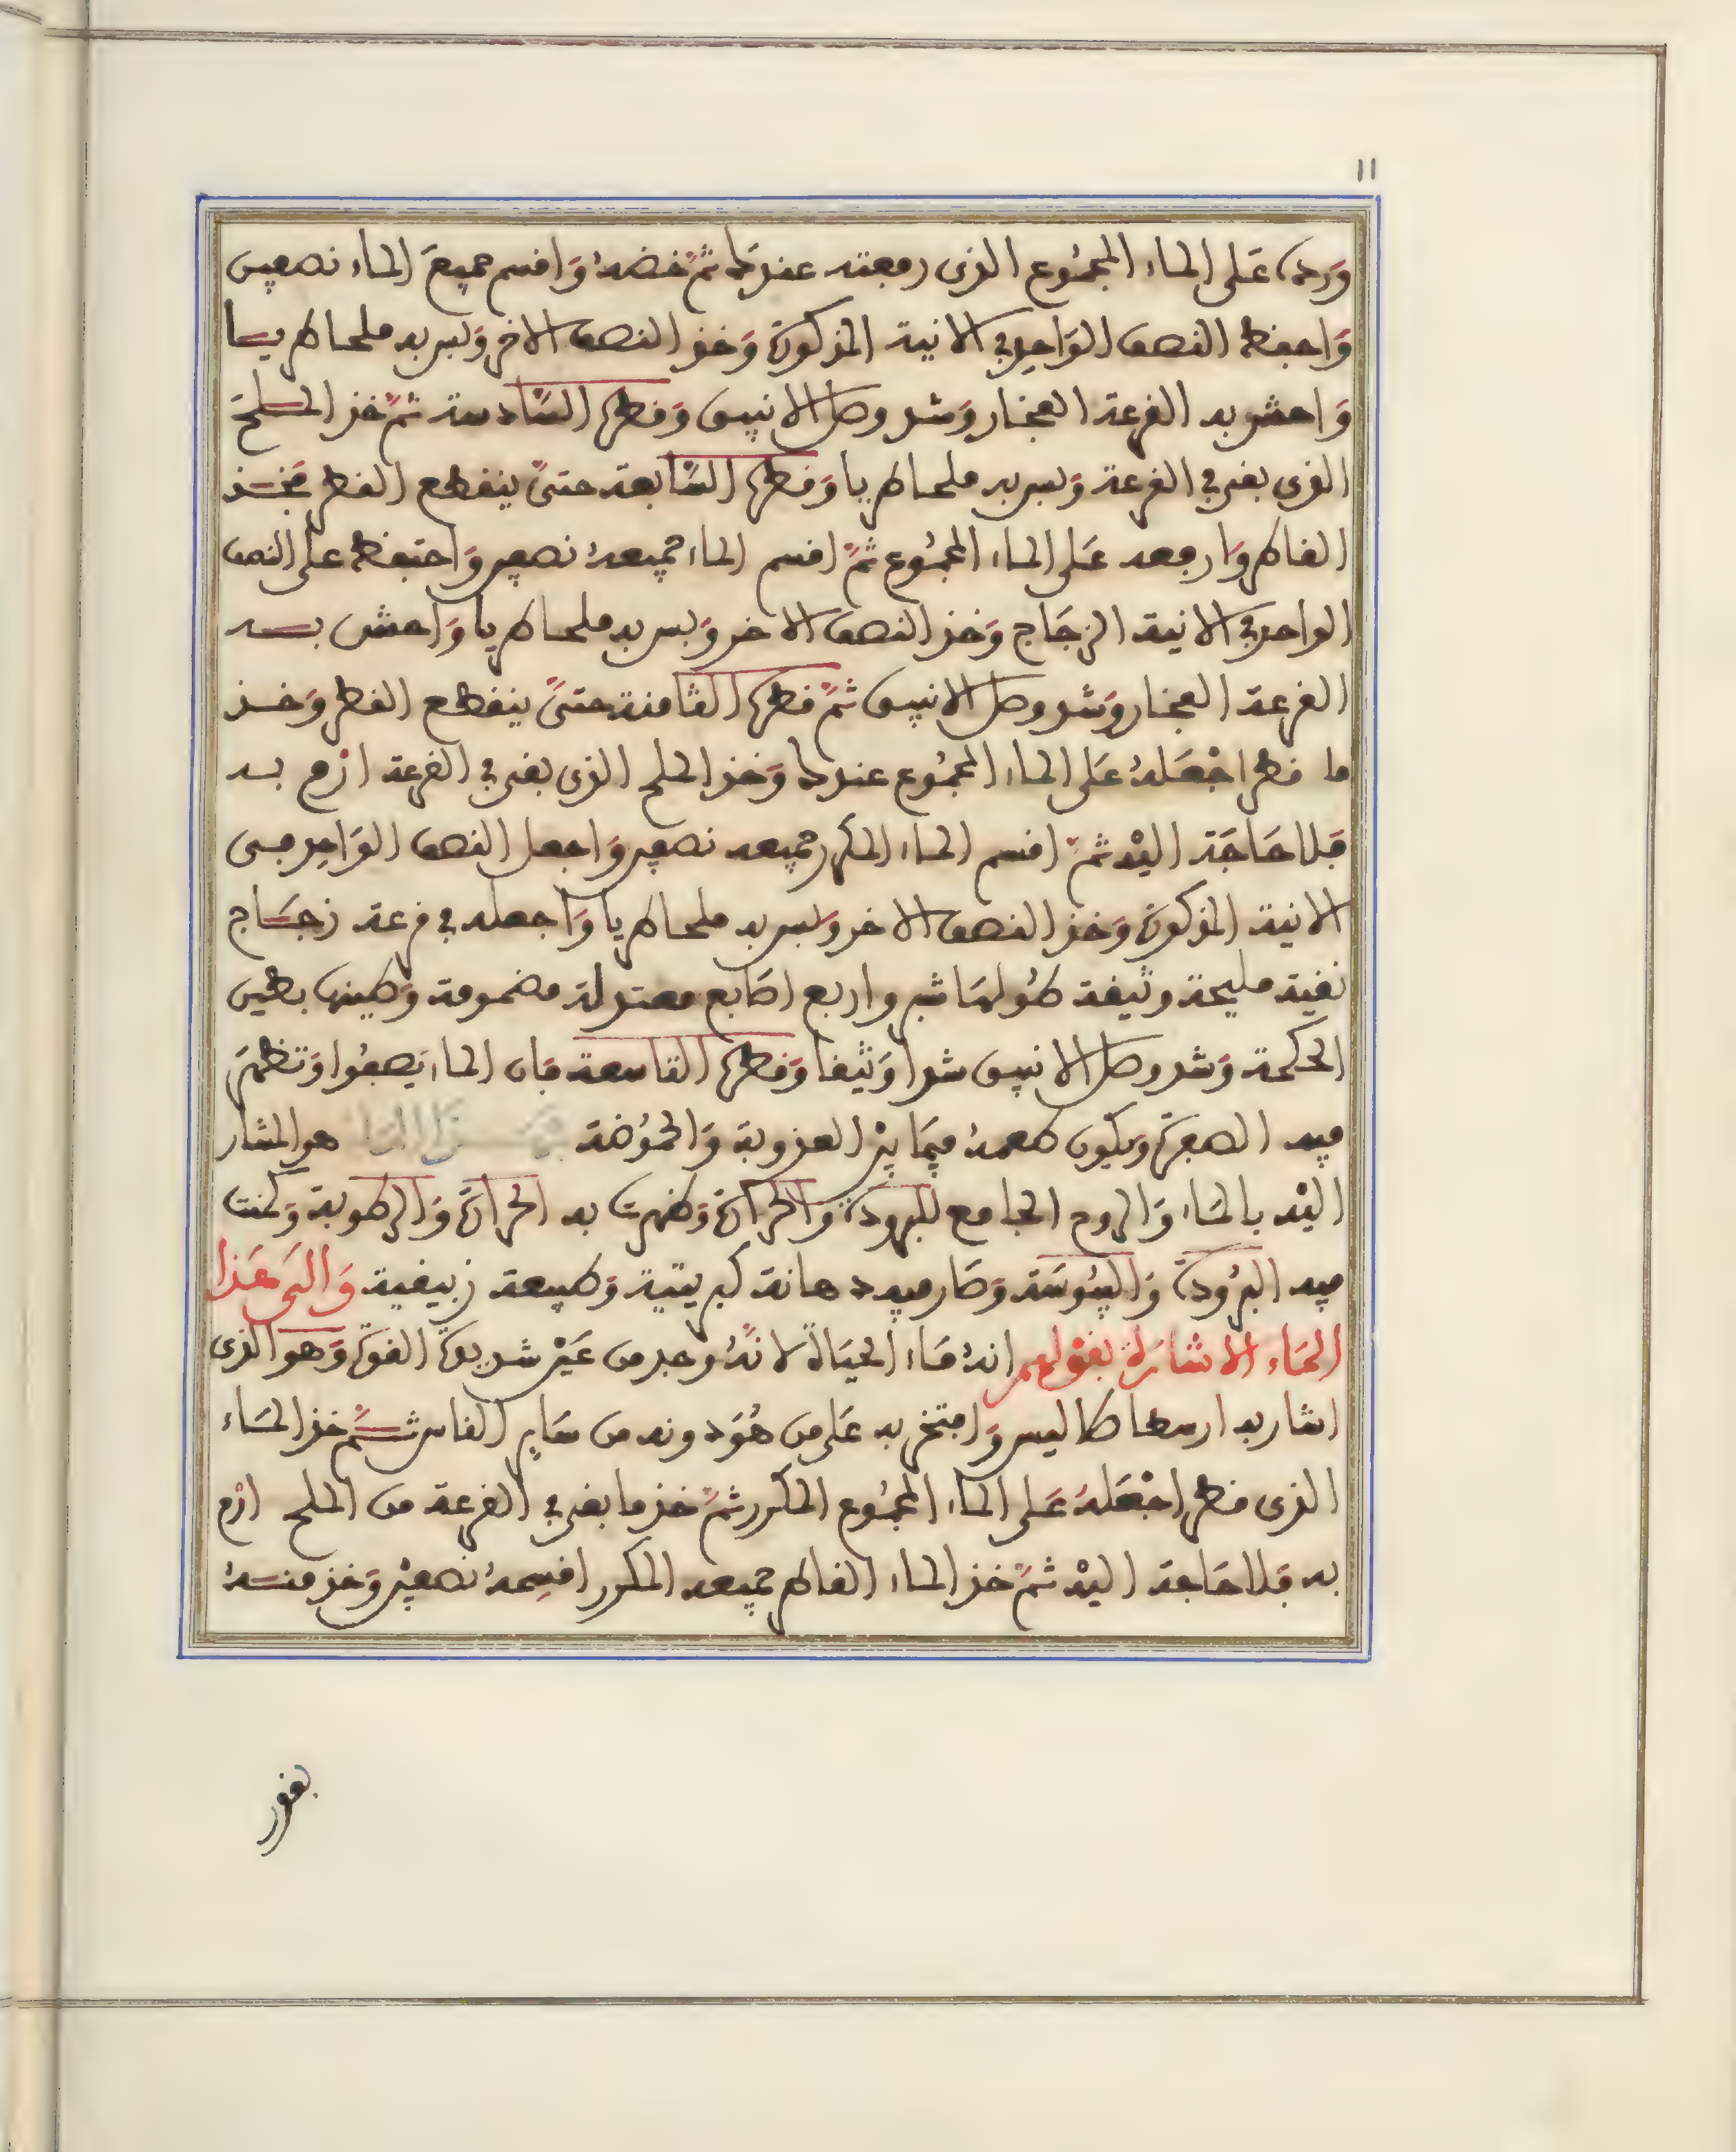 11
ورده على الماء المجموع الذي رفعته عندك ثم خضه واقسم جميع الماء نصفين
واحفظ النصف الواحد في الانية المذكورة وخذ النصف الاخر ولبس به ملحا طريا
واحش به القرعة الفخار وشد وصل الانبيق وقطر السادسة ثم خذ الملح
الذي بقى في القرعة ولبس به ملحا طريا وقطر السابعة حتى ينقطع القطر فخذ
القاطر وارفعه على الماء المجموع ثم اقسم الماء جميعه نصفين واحتفظ على النصف
الواحد في الانية الزجاج وخذ النصف الاخر ولبس به ملحا طريا واحش به
القرعة الفخار وشد وصل الانبيق ثم قطر الثامنة حتى ينقطع القطر وخذ
ما قطر اجعله على الماء المجموع عندك وخذ الملح الذي بقى في القرعة ازم به
فلا حاجة اليه ثم اقسم الماء المكرر جميعه نصفين واجعل النصف الواحد في
الانية المذكورة وخذ النصف الاخر ولبس به ملحا طريا واجعله في قرعة زجاج
نقية مليحة وثيقة طولها شبر واربع اصابع معتدلة مضمومة وطينها بطين
الحكمة وشد وصل الانبيق شدا وثيقا وقطر التاسعة فان الماء يصفوا وتظهر
فيه الصفرة ويكون طعمه فيما بين العذوبة والحموضة هو المشار
اليه بالماء والروح الجامع للبرودة والحرارة وظهرت به الحرارة والرطوبة وكمنت
فيه البرودة واليبوسة وصار فيه دهانة كبريتية وطبيعة زيبقية والى هذا
الماء الاشارة بقولهم انه ماء الحياة لانه وجد من غير شديدة القوة وهو الذي
اشار به ارسطاطاليس وافتخر به على من هو دونه من ساير الناس ثم خذ الماء
الذي قطر اجعله على الماء المجموع المكرر ثم خذ ما بقى في القرعة من الملح ازم
به فلا حاجة اليه ثم خذ الماء القاطر جميعه المكرر اقسمه نصفين وخذ منه
بقدر